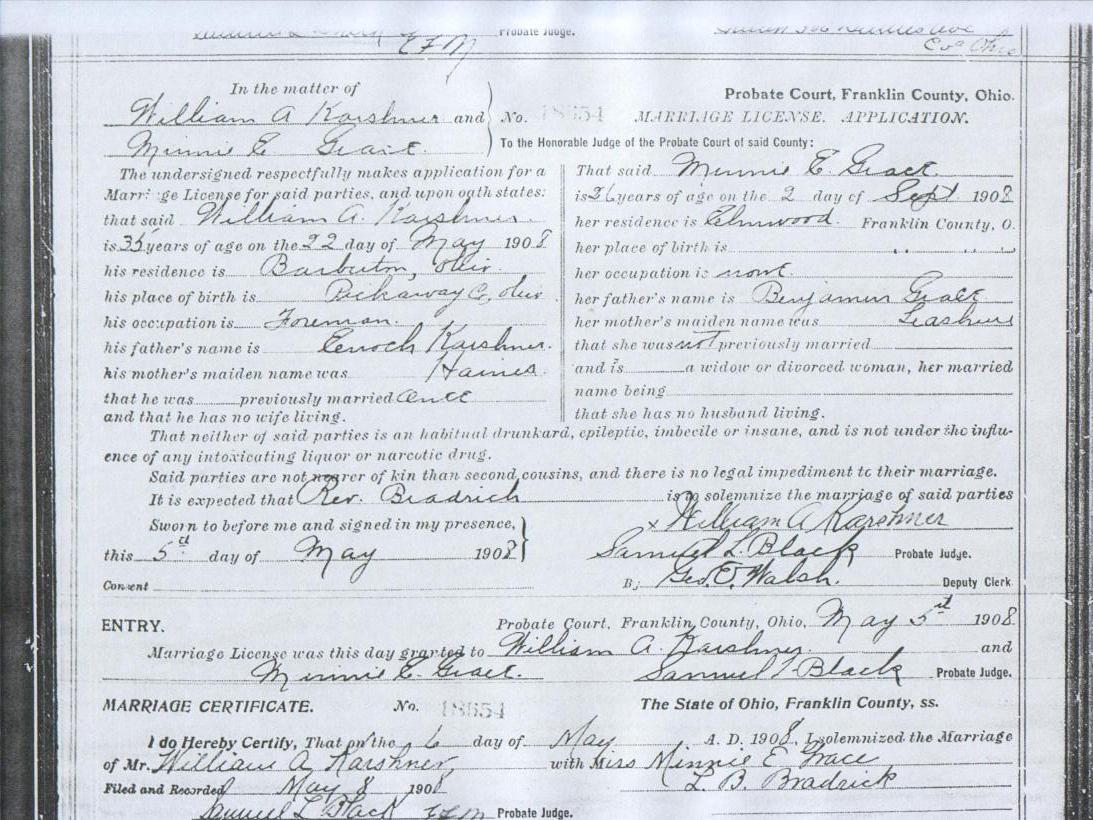 Probate Judge.
In the matter of
Probate Court, Franklin County, Ohio.
William A Karshner and
No. 18654 MARRIAGE LICENSE. APPLICATION.
Minnie E. Grace.
To the Honorable Judge of the Probate Court of said County:
The undersigned respectfully makes application for a
Marriage License for said parties, and upon oath states:
that said William A. Karshner.
is 35 years of age on the 22 day of May 1908
his residence is Barberton, Ohio.
his place of birth is Pickaway Co, Ohio
his occupation is Foreman.
his father's name is Enoch Karshner.
his mother's maiden name was Haines.
that he was previously married once
and that he has no wife living.
That said Minnie E. Grace
is 26 years of age on the 2 day of Sept 1908
her residence is Elmwood. Franklin County, O.
her place of birth is " " "
her occupation is none.
her father's name is Benjamin Grace
her mother's maiden name was
that she was not previously married
and is a widow or divorced woman, her married
name being
that she has no husband living.
That neither of said parties is an habitual drunkard, epileptic, imbecile or insane, and is not under the influ-
ence of any intoxicating liquor or narcotic drug.
Said parties are not nearer of kin than second cousins, and there is no legal impediment to their marriage.
It is expected that Rev. Bradrick is to solemnize the marriage of said parties
Sworn to before me and signed in my presence,
x William A Karshner
this 5th day of May 1908
Samuel L. Black Probate Judge.
Consent
By Geo. E. Walsh. Deputy Clerk
ENTRY.
Probate Court, Franklin County, Ohio, May 5th 1908
Marriage License was this day granted to William A. Karshner. and
Minnie E. Grace. Samuel L Black Probate Judge.
MARRIAGE CERTIFICATE. No. 18654 The State of Ohio, Franklin County, ss.
I do Hereby Certify, That on the 6 day of May A. D. 1908, I solemnized the Marriage
of Mr. William A Karshner, with Miss Minnie E Grace
Filed and Recorded May 8 1908 L. B. Bradrick
Samuel L Black EFM Probate Judge.